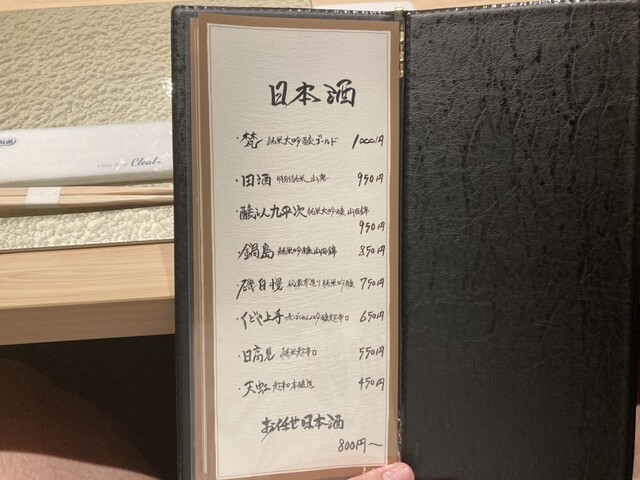 日本酒
・梵 純米大吟醸ゴールド 1000円
・田酒 特別純米 山廃 950円
・醸し人九平次 純米大吟醸 山田錦
950円
・鍋島 純米吟醸山田錦 850円
・磯自慢 純米吟醸 750円
・くどき上手 ばくれん吟醸超辛口 650円
・日高見 純米超辛口 550円
・天虹 超辛口本醸造 450円
お任せ日本酒
800円〜
Clear